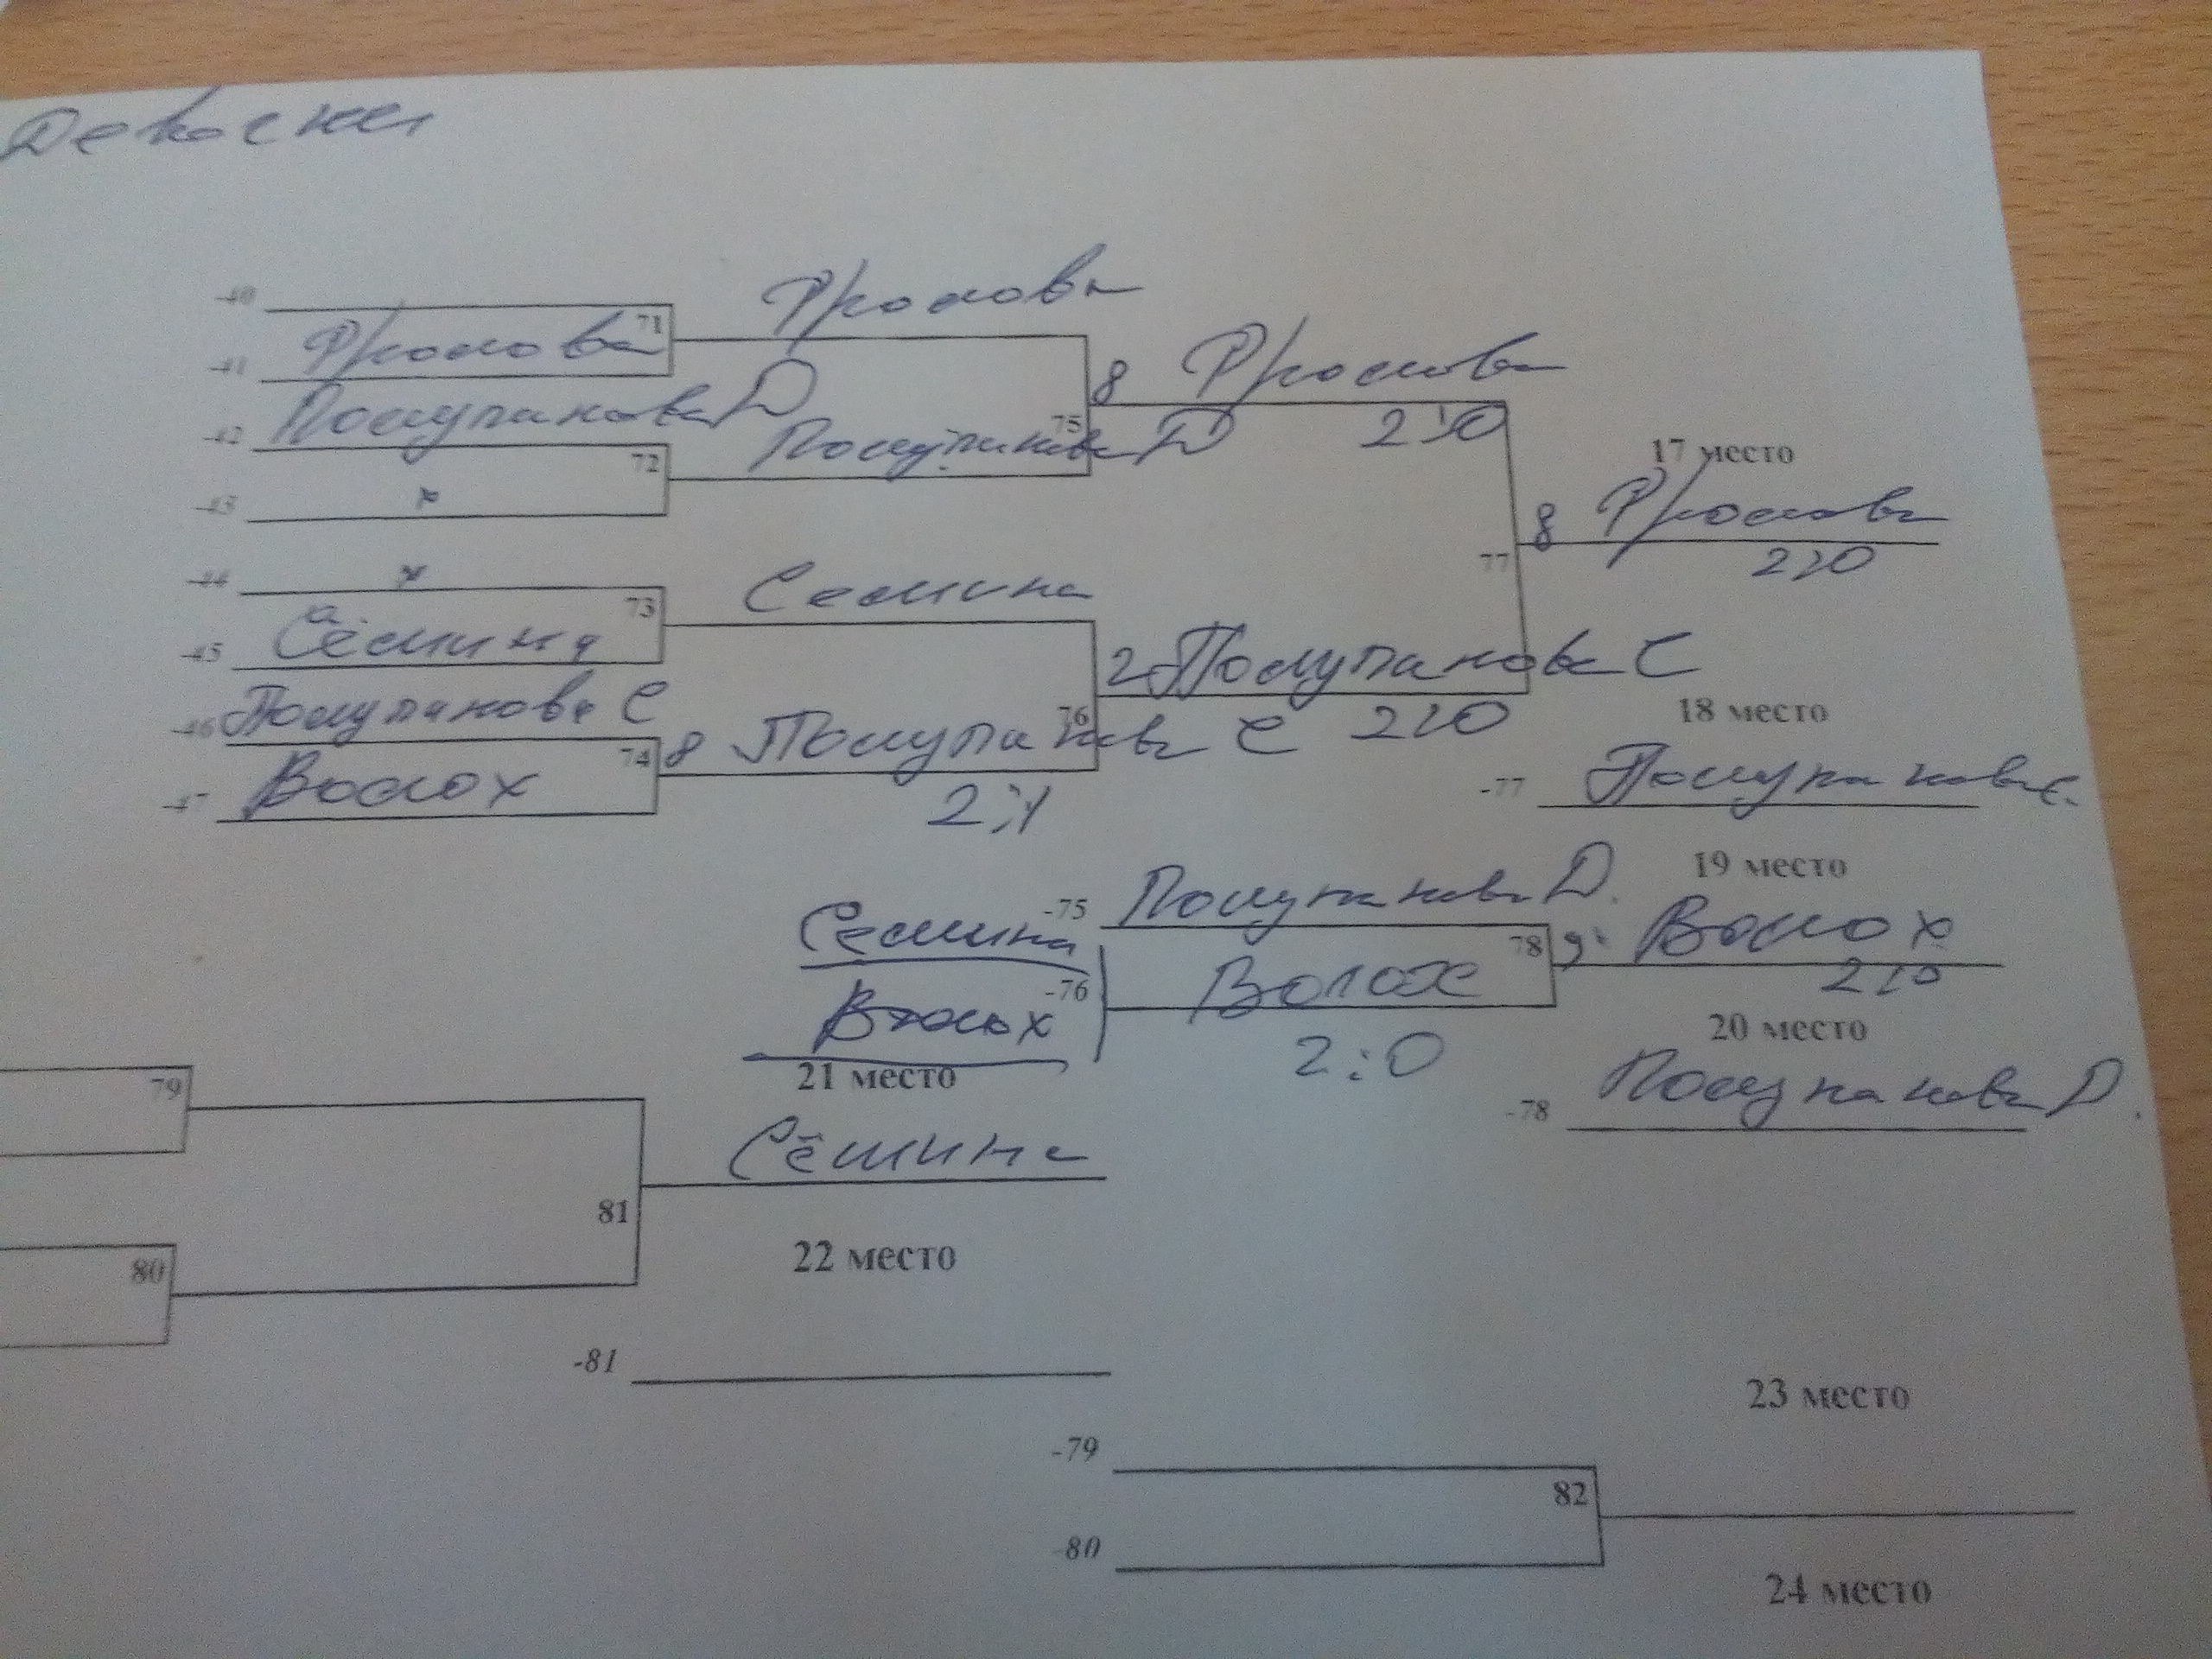 Девочки
-40
71
Фролова
Фролова
-41
8 Фролова
Полупанова D
-42
75
2:0
72
Полупанова D
17 место
-43 x
8 Фролова
77
2:0
-44 x
73
Семина
Сёмина
-45
2 Полупанова С
Полупанова С
-46
76
2:0
18 место
74
8 Полупанова С
Волох
-47
2:1
-77 Полупанова С.
19 место
-75 Полупанова D.
Семина
78
Волох
-76 Волох
2:0
Волох
2:0
20 место
21 место
79
Полупанова D.
-78
Сёмина
81
22 место
80
-81
23 место
-79
82
-80
24 место